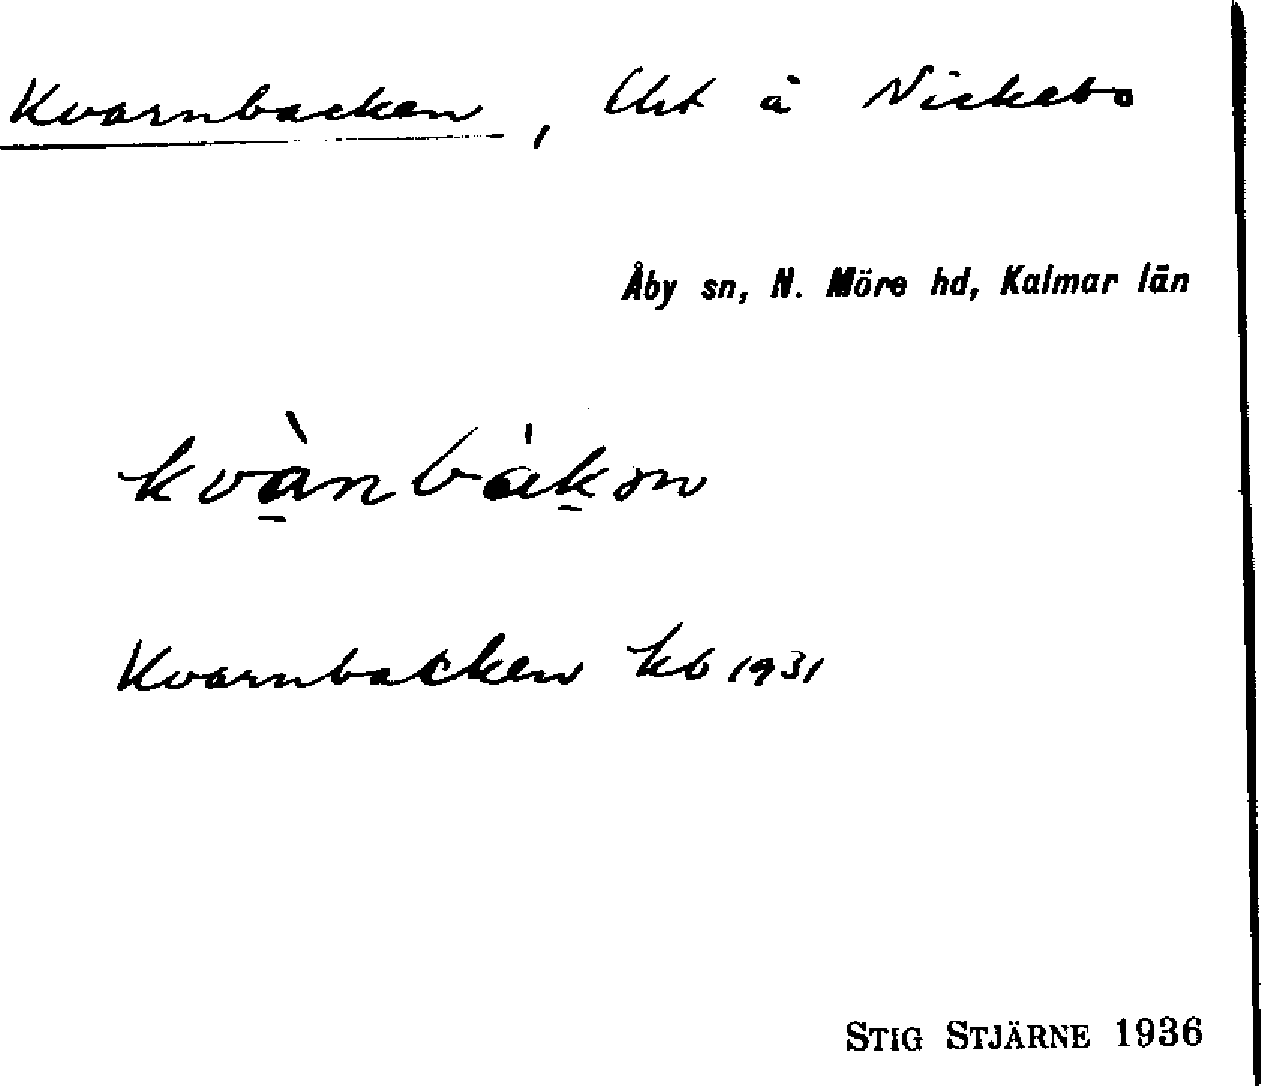 Kvarnbacken, Uht å Nickebo
Åby sn, N. Möre hd, Kalmar län
kvànbákən
Kvarnbacken kb 1931
STIG STJÄRNE 1936